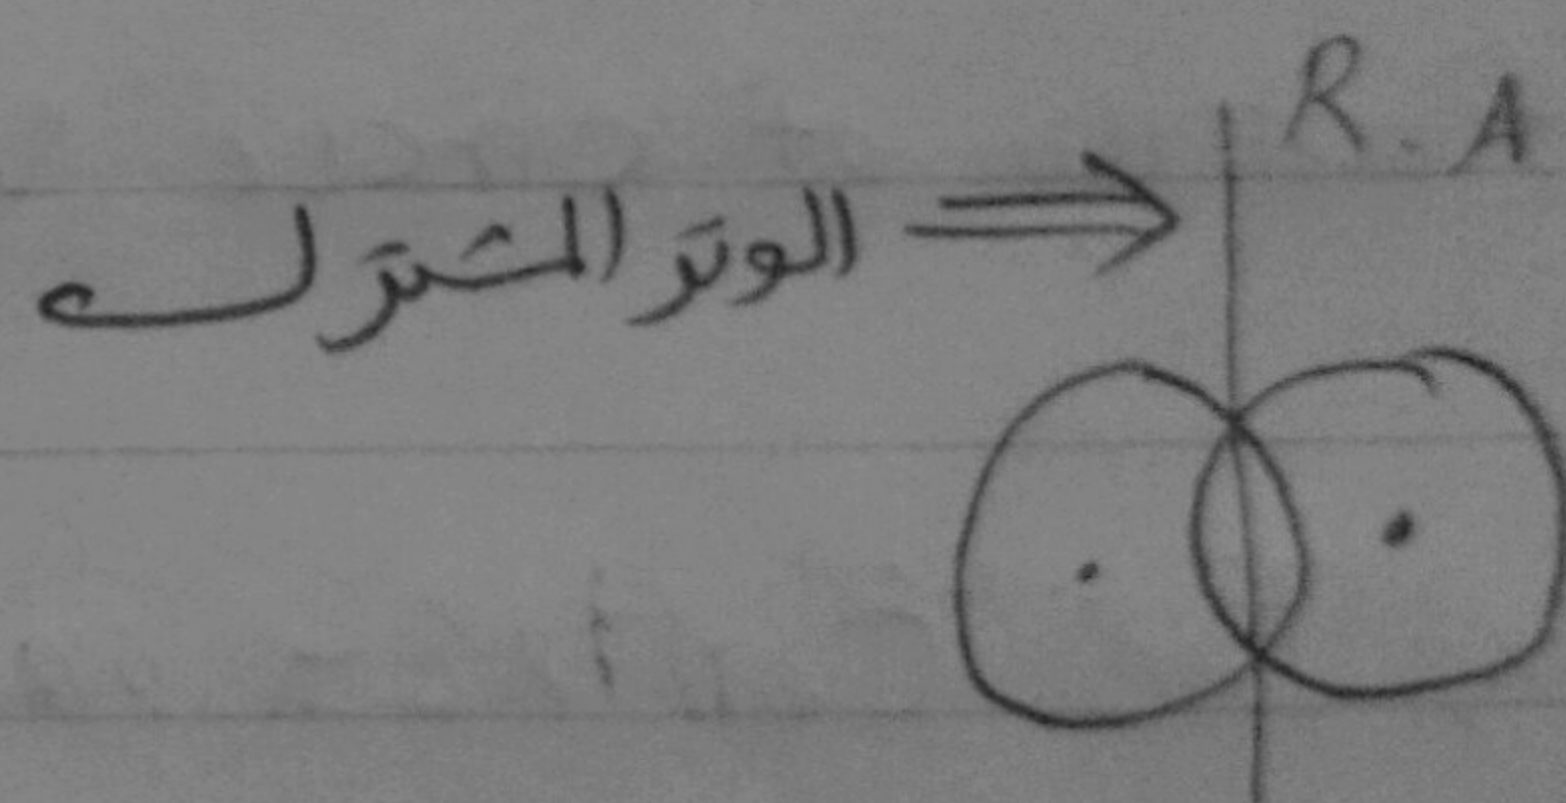 R.A
الوتر المشترك